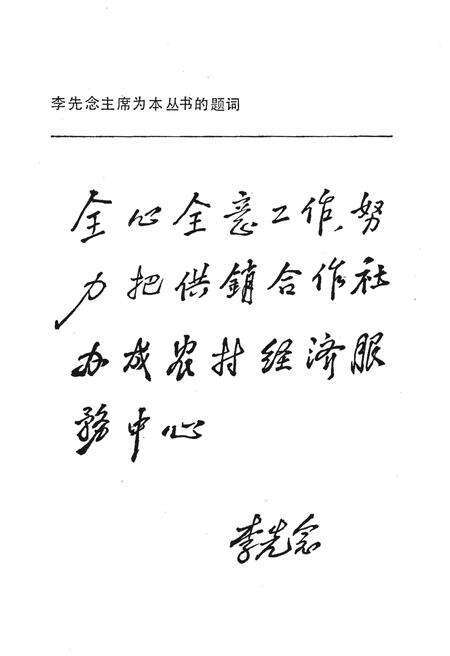 李先念主席为本丛书的题词
全心全意工作、努
力把供銷合作社
办成农村经济服
務中心
李先念